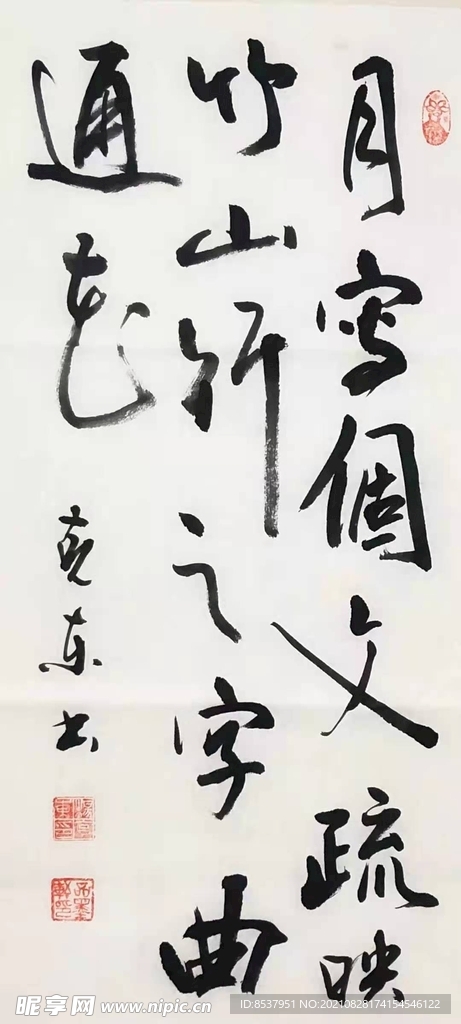 月写個文疏映
竹山行之字曲
通花
克东书
昵享网 www.nipic.cn
ID:8537951 NO:20210828174154546122